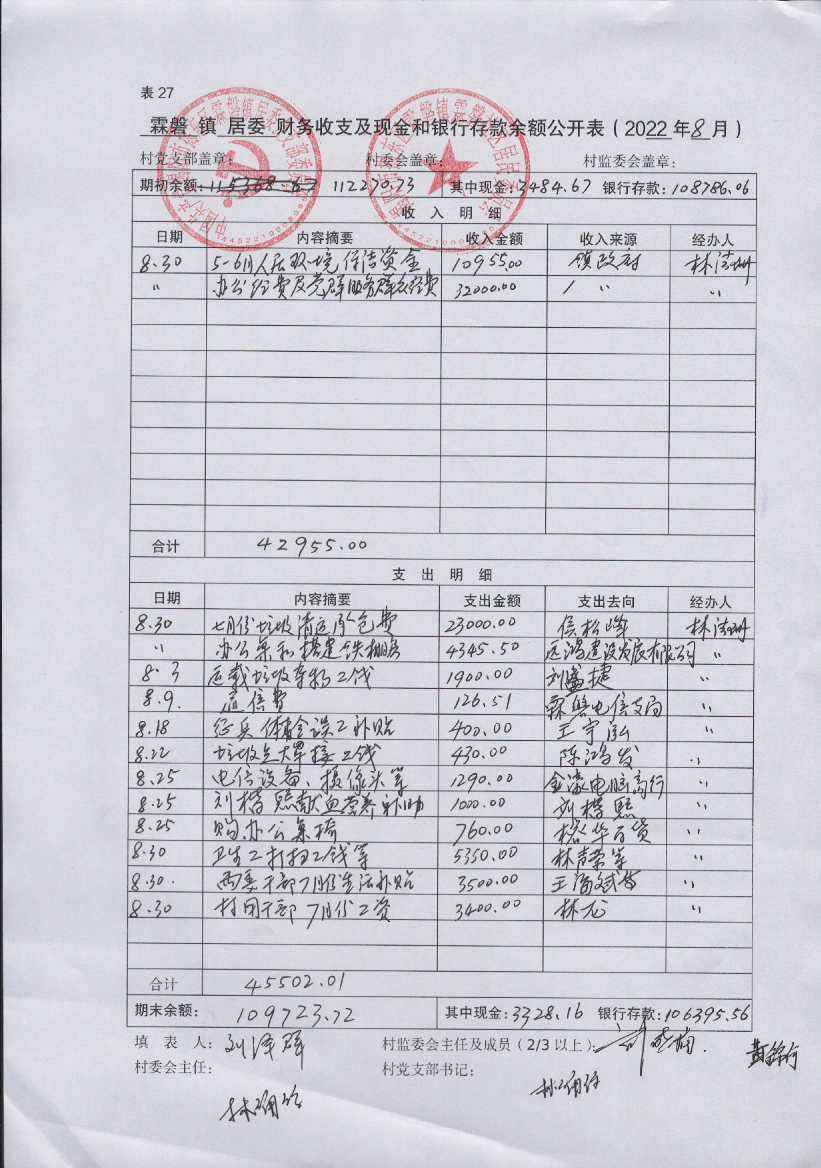 表 27
霖磐 镇 居委 财务收支及现金和银行存款余额公开表（2022年8月）
村党支部盖章： 村委会盖章： 村监委会盖章：
期初余额：115368.67 112270.73 其中现金：3484.67 银行存款：108786.06
收 入 明 细
日期 内容摘要 收入金额 收入来源 经办人
8.30 5-6月人居环境保洁资金 10955.00 镇政府 林
〃 办公经费及党群服务群众经费 32000.00 / 〃 〃
合计 42955.00
支 出 明 细
日期 内容摘要 支出金额 支出去向 经办人
8.30 七月份垃圾清运承包费 23000.00 侯松峰 林
〃 办公桌和搭建铁棚 4345.50 远鸿建设发展有限公司 〃
8.3 运载垃圾杂物工钱 1900.00 刘盛捷 〃
8.9. 通信费 126.51 霖磐电信支局 〃
8.18 征兵体检误工补贴 400.00 王宇泓 〃
8.22 垃圾点焊接工钱 430.00 陈鸿发 〃
8.25 电信设备、摄像头等 1290.00 金濠电脑商行 〃
8.25 刘楷 献血营养补助 1000.00 刘楷 〃
8.25 购办公桌椅 760.00 华百货 〃
8.30 卫生工打扫工钱等 5350.00 林声荣等 〃
8.30. 两委干部7月份生活补贴 3500.00 王 斌等 〃
8.30 村团干部7月份工资 3400.00 林龙 〃
合计 45502.01
期末余额： 109723.72 其中现金：3328.16 银行存款：106395.56
填 表 人：刘泽群 村监委会主任及成员（2/3以上）：
村委会主任： 村党支部书记：